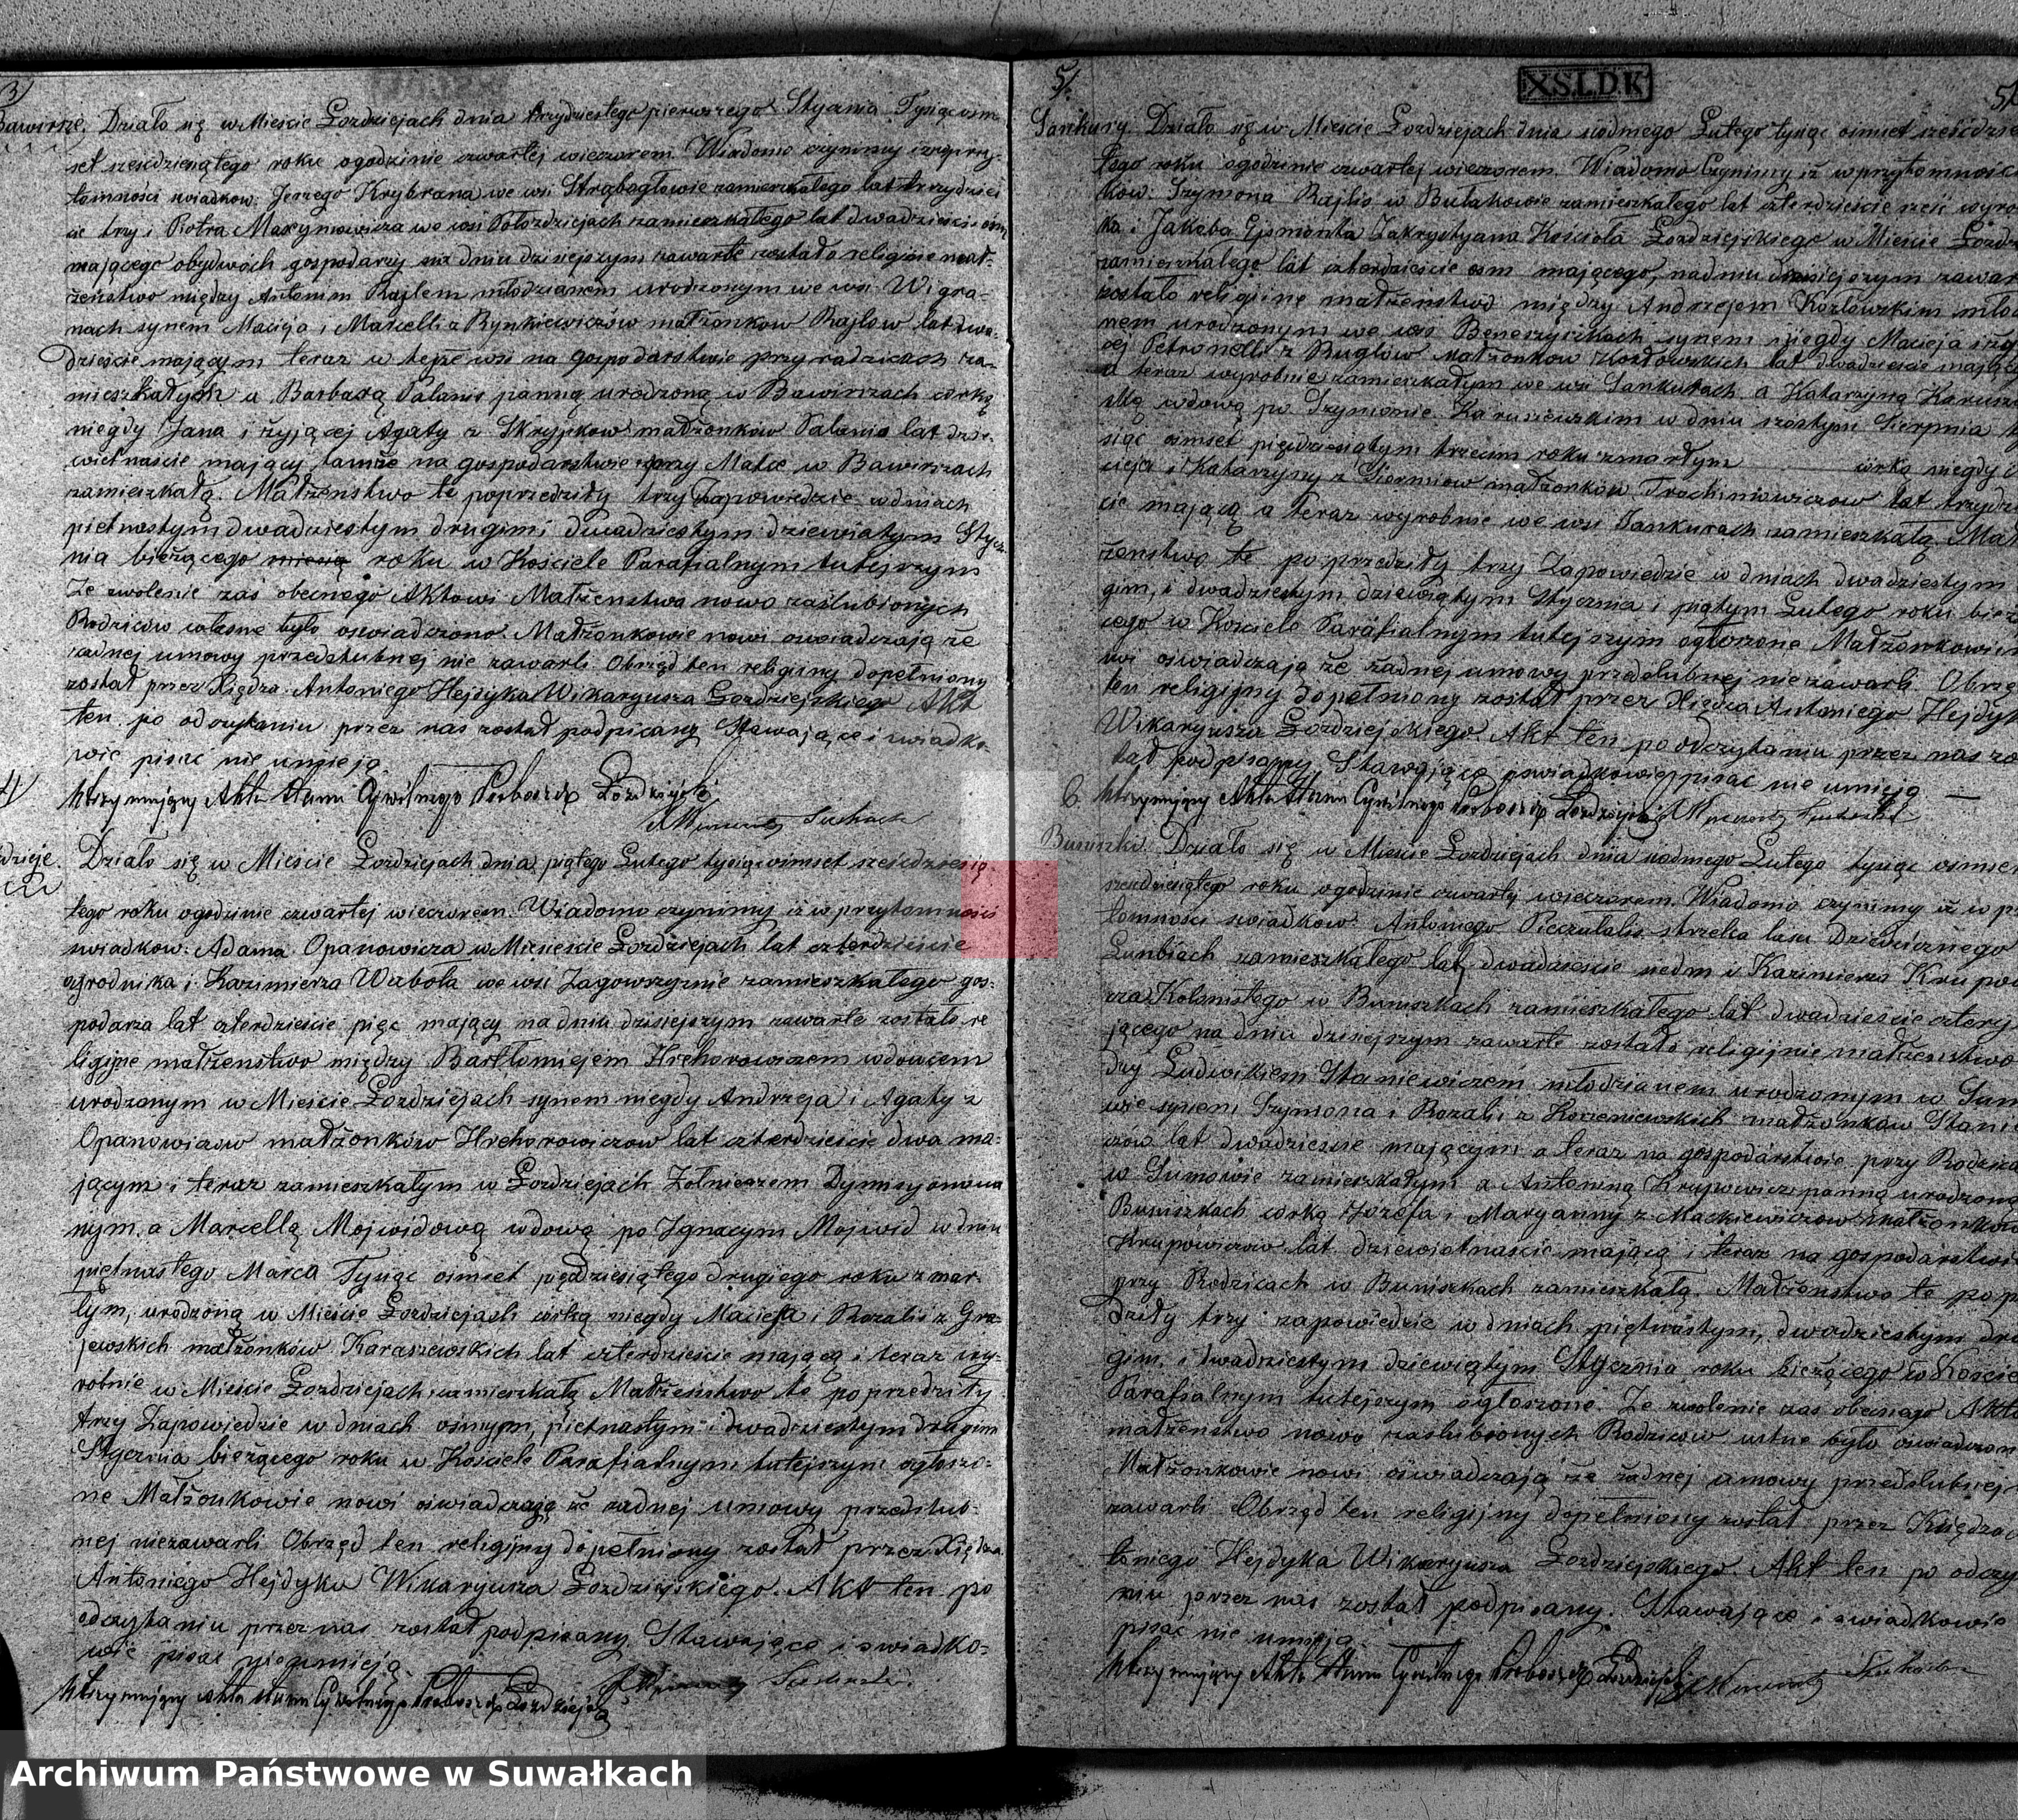 3)
Bawirsze. Działo się w Mieście Łozdziejach dnia trzydziestego pierwszego Stycznia Tysiąc ośm-
set sześćdziesiątego roku o godzinie czwartej wieczorem. Wiadomo czynimy iż w przy-
tomności świadkow. Jerzego Krybrana we wsi Strąbogłowie zamieszkałego lat trzydzieś-
cie trzy i Piotra Maxymowicza we wsi zamieszkałego lat dwadzieścia ośm
mającego obydwoch gospodarzy na dniu dzisiejszym zawarte zostało religijne mał-
żeństwo między Antonim Rajlem młodzianem urodzonym we wsi Wigra-
nach synem Macieja i Marcelli z Rynkiewiczów małżonkow Rajlow lat dwa-
dzieście mającym teraz w tejże wsi na gospodarstwie przy rodzicach za-
mieszkałym a Barbarą Palanis panną urodzoną w Bawirszach corką
niegdy Jana i żyjącej Agaty z Skrypkow małżonków Palanis lat dzie-
wietnaście mający tamże na gospodarstwie przy Matce w Bawirszach
zamieszkałą. Małżeństwo te poprzedziły trzy Zapowiedzie w dniach
pietnastym dwadziestym drugim i dwadziestym dziewiątym Stycz-
nia bieżącego roku w Kościele Parafialnym tutejszym
Ze zwolenie zaś obecnego Aktowi Małżenstwa nowo zaślubionych
Rodziców własne było oswiadczono. Małżonkowie nowi oswiadczają że
żadnej umowy przedślubnej nie zawarli. Obrzęd ten religijny dopełniony
został przez Xiędza Antoniego Hejdyka Wikaryusza Łozdziejskiego Akt
ten po odczytaniu przez nas został podpisany Stawające i swiadko-
wie pisać nie umieją.
Utrzymujący Akta Stanu Cywilnego Proboszcz Łozdziejski
4)
dzieje. Działo się w Mieście Łozdziejach dnia piątego Lutego tysiąc ośmset sześćdziesią-
tego roku o godzinie czwartej wieczorem. Wiadomo czynimy iż w przytomności
swiadkow: Adama Opanowicza w Mieście Łozdziejach lat czterdzieście
ogrodnika i Kazimierza Wabola we wsi Zagowszyznie zamieszkałego gos-
podarza lat czterdzieście pięć mający na dniu dzisiejszym zawarte zostało re
ligijne małżenstwo między Bartłomiejem Hrehorowiczem wdowcem
urodzonym w Mieście Łozdziejach synem niegdy Andrzeja i Agaty z
Opanowiczow małżonków Hrehorowiczow lat czterdzieście dwa ma-
jącym i teraz zamieszkałym w Łozdziejach Żołnierzem Dymisyonowa
nym a Marcellą Mojwidową wdową po Ignacym Mojwid w dniu
piętnastego Marca Tysiąc ośmset pięćdziesiątego drugiego roku zmar-
łym, urodzoną w Mieście Łozdziejach corką niegdy Macieja i Rozalii z Gra-
jewskich małżonków Karaszewskich lat czterdzieście mającą i teraz wy-
robnie w Mieście Łozdziejach zamieszkałą Małżeństwo te poprzedziły
trzy Zapowiedzie w dniach ośmym, pietnastym i dwadziestym drugim
Stycznia bieżącego roku w Kościele Parafialnym tutejszym ogłoszo-
ne Małżonkowie nowi oswiadczają że żadnej umowy przedślub-
nej niezawarli. Obrzęd ten religijny dopełniony został przez Xiędza
Antoniego Hejdyka Wikaryusza Łozdziejskiego. Akt ten po
odczytaniu przez nas został podpisany. Stawające i swiadko-
wie pisać nie umieją.
Utrzymujący Akta Stanu Cywilnego Proboszcz Łozdziejski
XSLDK
5)
Sankury. Działo się w Mieście Łozdziejach dnia siodmego Lutego tysiąc ośmset sześćdzie
tego roku o godzinie czwartej wieczorem. Wiadomo Czynimy iż w przytomnosci
kow. Szymona Rajlis w Bułakowie zamieszkałego lat czterdzieście sześć wyro
ka i Jakoba Gismonta Zakrystyana Kościoła Łozdziejskiego w Mieście Łozdz
zamieszkałego lat czterdzieście osm mającego, na dniu dzisiejszym zawar
zostało religijne małżenstwo między Andrzejem Kozłowskim młod
nem urodzonym we wsi synem niegdy Macieja i żyj
cej Petronelli z Buglow małżonkow Kozłowskich lat dwadzieście mający
a teraz wyrobnie zamieszkałym we wsi Sankurach a Katarzyną Karusz
ską wdową po Szymonie Karuszewskim w dniu szostym Sierpnia ty
siąc ośmset pięćdziesiątym trzecim roku zmarłym corką niegdy
cieja i Katarzyny z małżonków Trochimowiczow lat trzydzi
cie mającą a teraz wyrobnie we wsi Sankurach zamieszkałą. Mał
żenstwo te poprzedziły trzy Zapowiedzie w dniach dwadziestym
gim, i dwadziestym dziewiątym Stycznia i piątym Lutego roku bież
cego w Kosciele Parafialnym tutejszym ogłoszone Małżonkowie
wi oświadczają że żadnej umowy przedslubnej niezawarli. Obrzę
ten religijny dopełniony został przez Xiędza Antoniego Hejdyk
Wikaryusza Łozdziejskiego. Akt ten po odczytaniu przez nas zo
stał podpisany Stawające i swiadkowie pisać nie umieją. —
Utrzymujący Akta Stanu Cywilnego Proboszcz Łozdziejski
6.
Buniszki. Działo się w Mieście Łozdziejach dnia siodmego Lutego tysiąc ośmset
sześćdziesiątego roku o godzinie czwartej wieczorem. Wiadomo czynimy iż w prz
tomności swiadkow: Antoniego Pieczulalis strzelca lasu Dziedzicznego
zamieszkałego lat dwadzieście siedm i Kazimierza Krupow
cza Kolonistego w Buniszkach zamieszkałego lat dwadzieście cztery
jącego na dniu dzisiejszym zawarte zostało religijnie małżenstwo
dzy Ludwikiem Staniewiczem młodzianem urodzonym w Sum
wie synem Szymona i Rozalii z Korzeniewskich małżonków Stanie
czów lat dwadzieście mającym a teraz na gospodarstwie przy Rodzica
w Sumowie zamieszkałym a Antoniną Krupowicz panną urodzoną
Buniszkach corką Jozefa i Maryanny z Mackiewiczow małżonkow
Krupowiczow lat dziewietnaście mającą i teraz na gospodarstwie
przy Rodzicach w Buniszkach zamieszkałą. Małżenstwo te pop
dziły trzy zapowiedzie w dniach piętnastym, dwadziestym dru
gim, i dwadziestym dziewiątym Stycznia roku bieżącego w Koście
Parafialnym tutejszym ogłoszone. Ze zwolenie zas obecnego Akto
małżenstwo nowo zaslubionych Rodzicow ustne było oswiadczon
Małżonkowie nowi oswiadczają że żadnej umowy przedslubnej
zawarli Obrzęd ten religijny dopełniony został przez Księdza
toniego Hejdyka Wikaryusza Łozdziejskiego. Akt ten po odczy
niu przez nas został podpisany. Stawające i swiadkowie
pisać nie umieją.
Utrzymujący Akta Stanu Cywilnego Proboszcz Łozdziejski
Archiwum Państwowe w Suwałkach